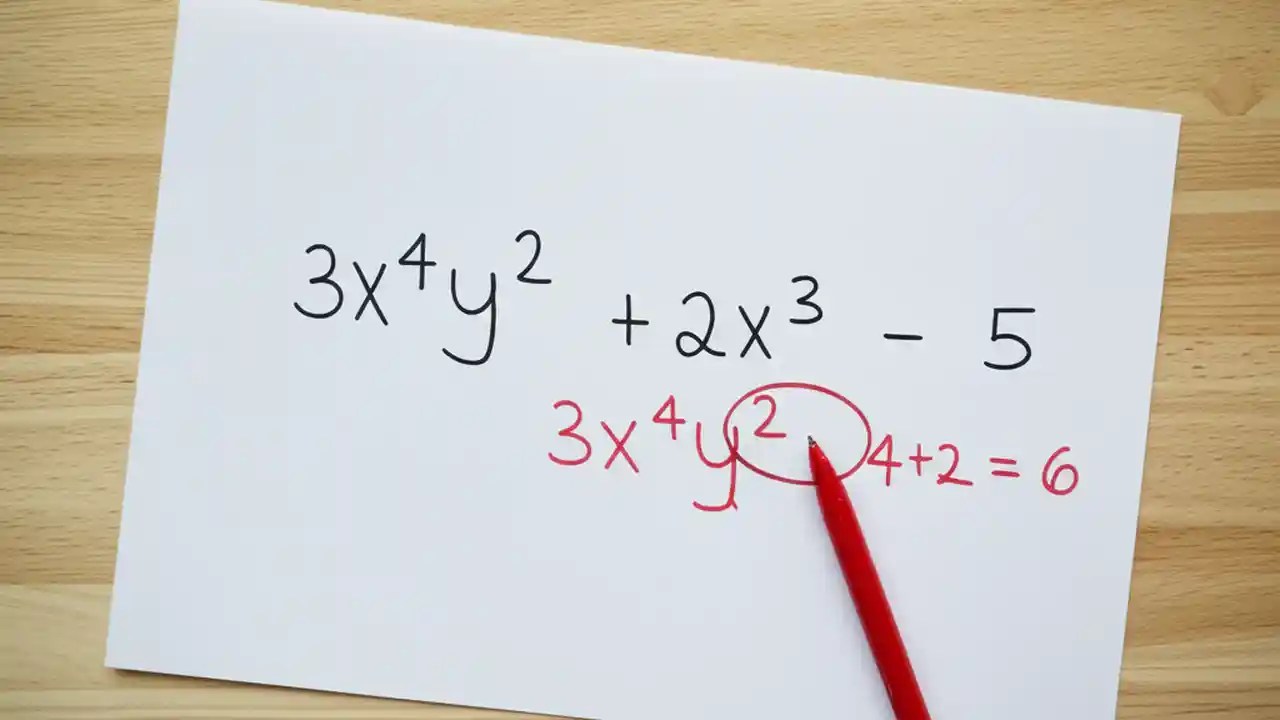 3x⁴y² + 2x³ - 5
3x⁴y² 4+2 = 6